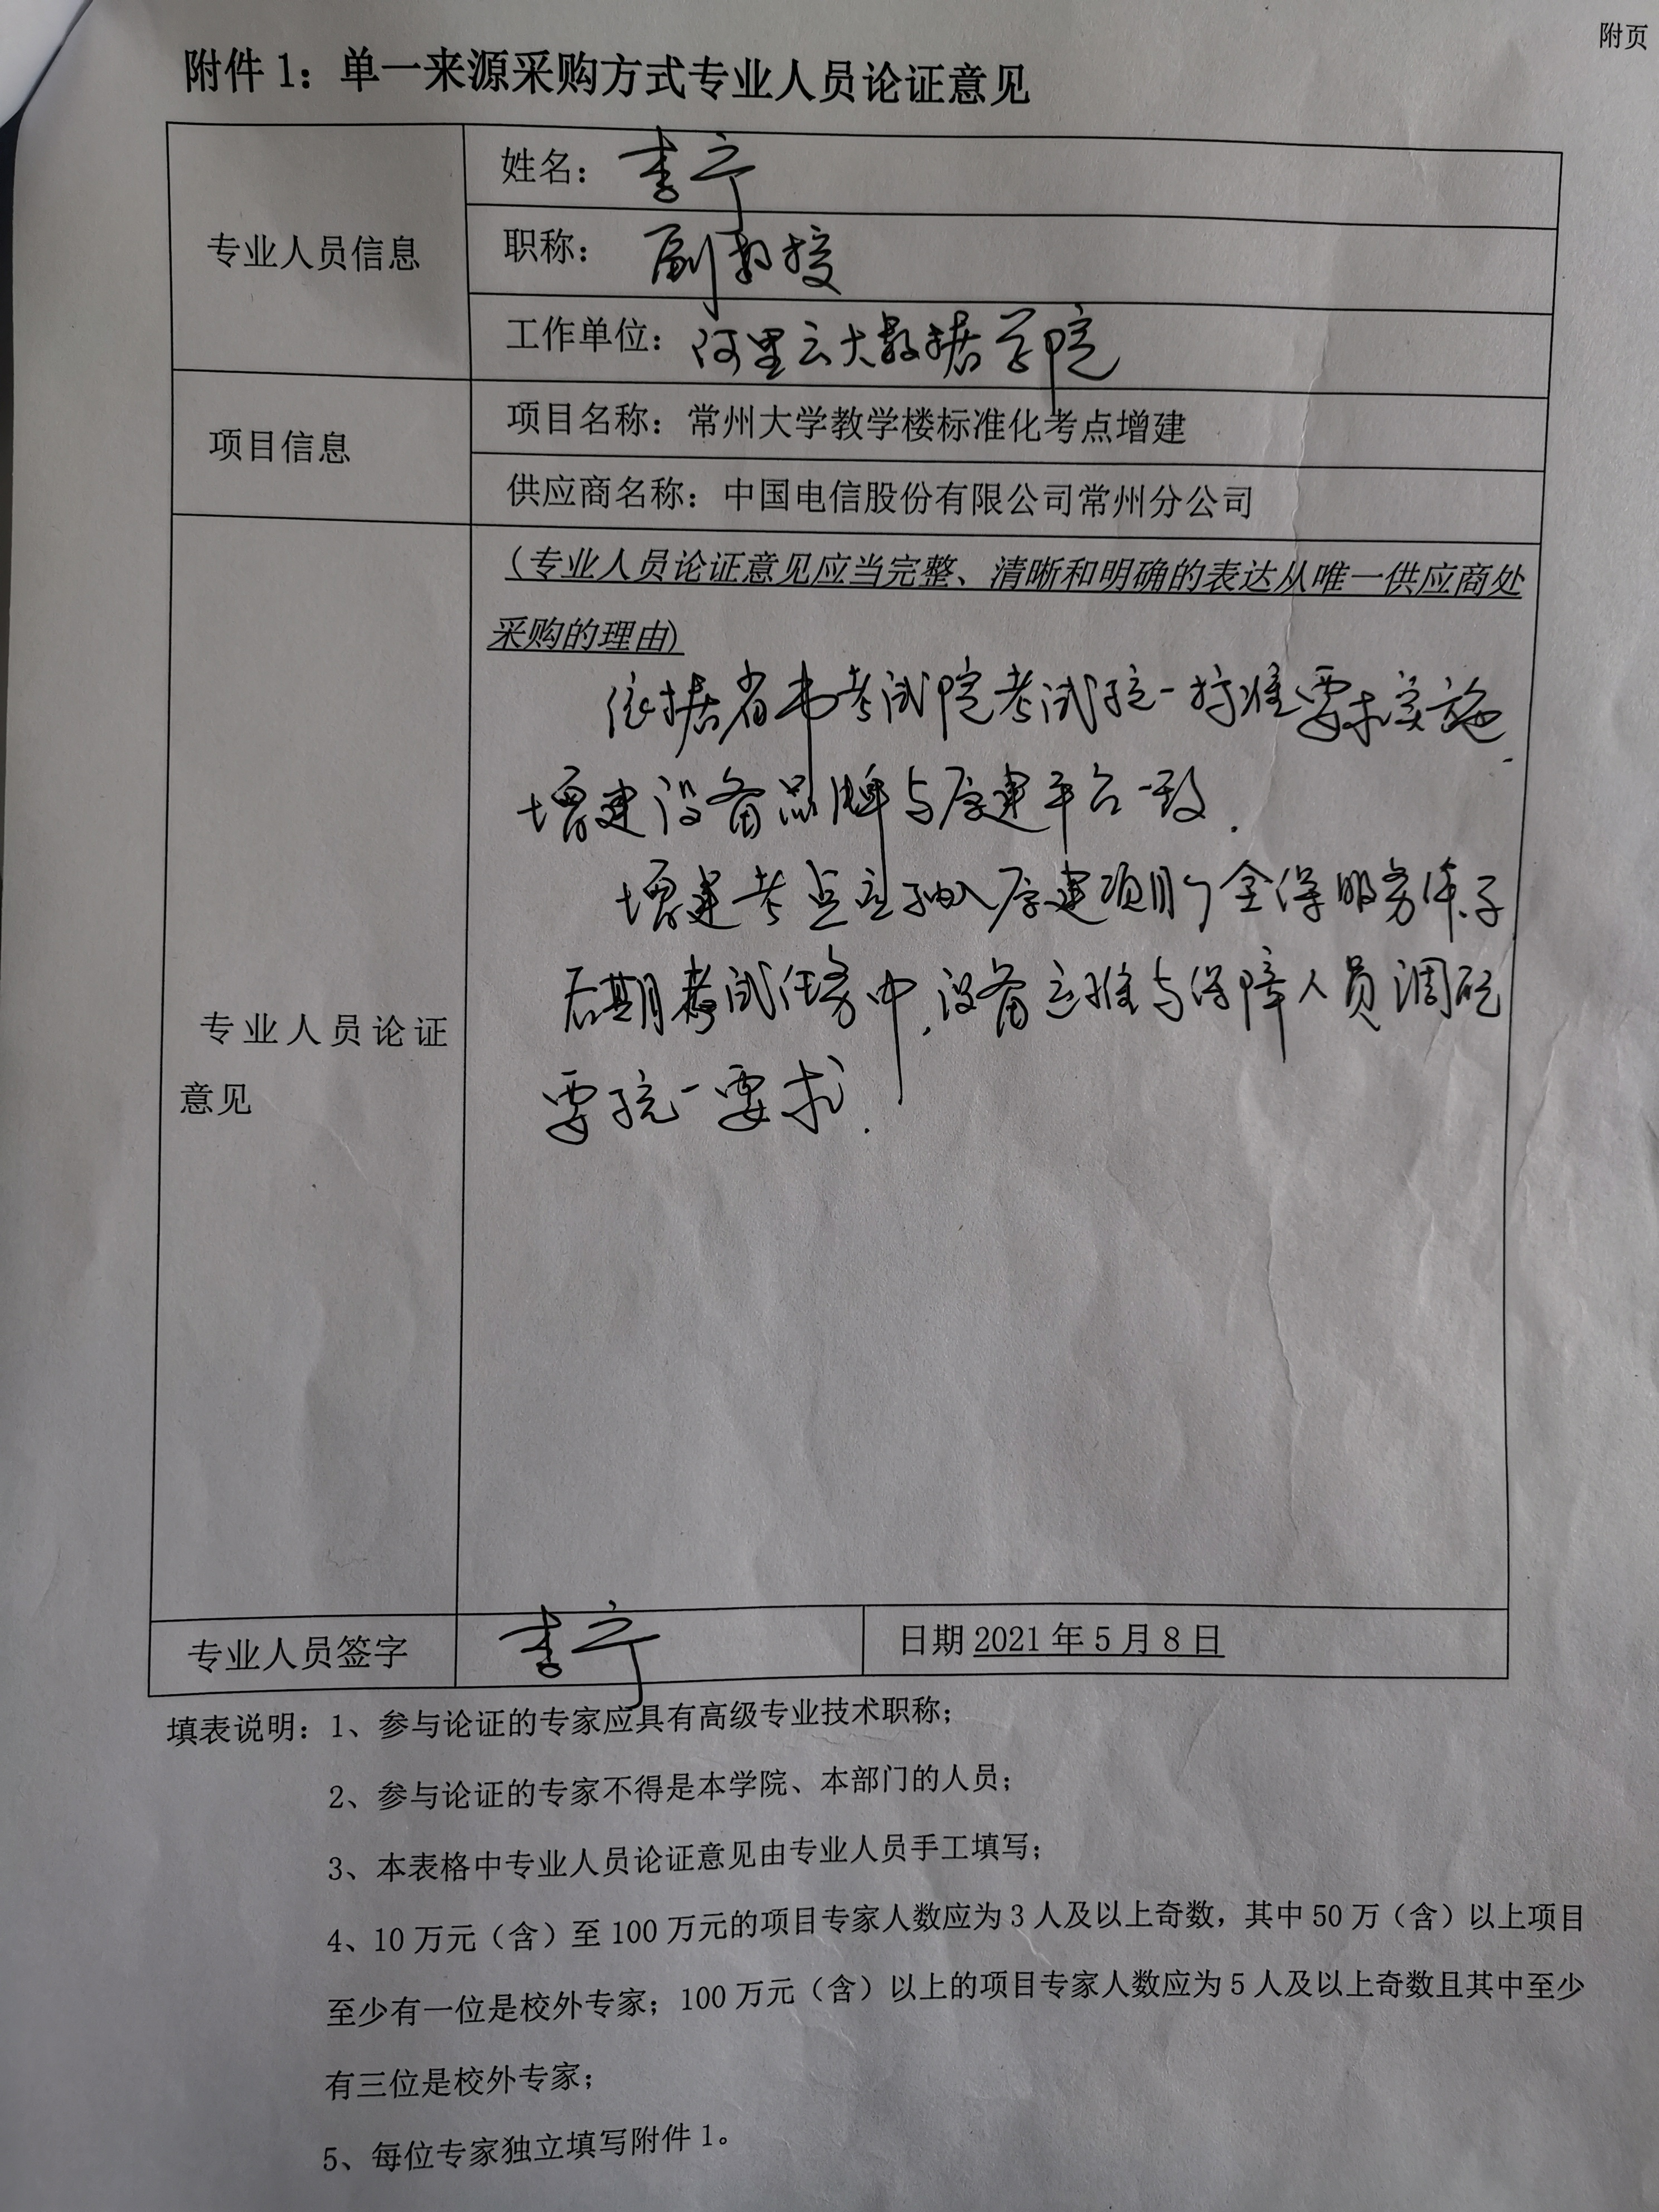 附页
附件1：单一来源采购方式专业人员论证意见
专业人员信息
姓名：李宁
职称：副教授
工作单位：阿里云大数据学院
项目信息
项目名称：常州大学教学楼标准化考点增建
供应商名称：中国电信股份有限公司常州分公司
专业人员论证
意见
（专业人员论证意见应当完整、清晰和明确的表达从唯一供应商处
采购的理由)
依据省市考试院考试统一标准要求实施
增建设备品牌与原建平台一致.
增建考点应纳入原建项目全保服务体系
后期考试任务中,设备运维与保障人员调配
要统一要求.
专业人员签字
李宁
日期 2021年5月8日
填表说明：1、参与论证的专家应具有高级专业技术职称；
2、参与论证的专家不得是本学院、本部门的人员；
3、本表格中专业人员论证意见由专业人员手工填写；
4、10万元（含）至100万元的项目专家人数应为3人及以上奇数，其中50万（含）以上项目
至少有一位是校外专家；100万元（含）以上的项目专家人数应为5人及以上奇数且其中至少
有三位是校外专家；
5、每位专家独立填写附件1。